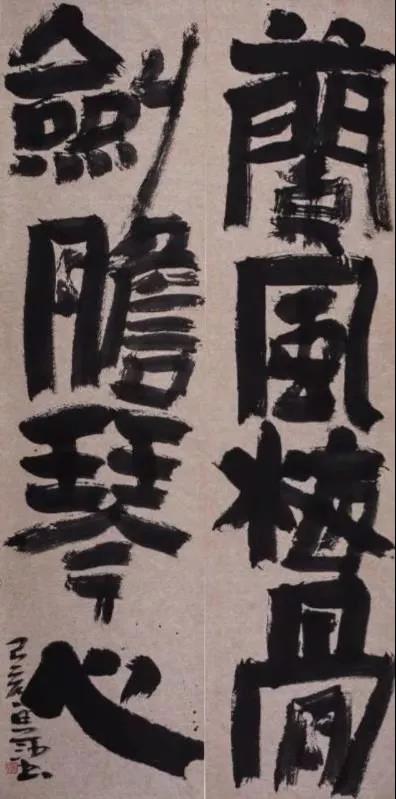 蘭風梅骨
劍膽琴心